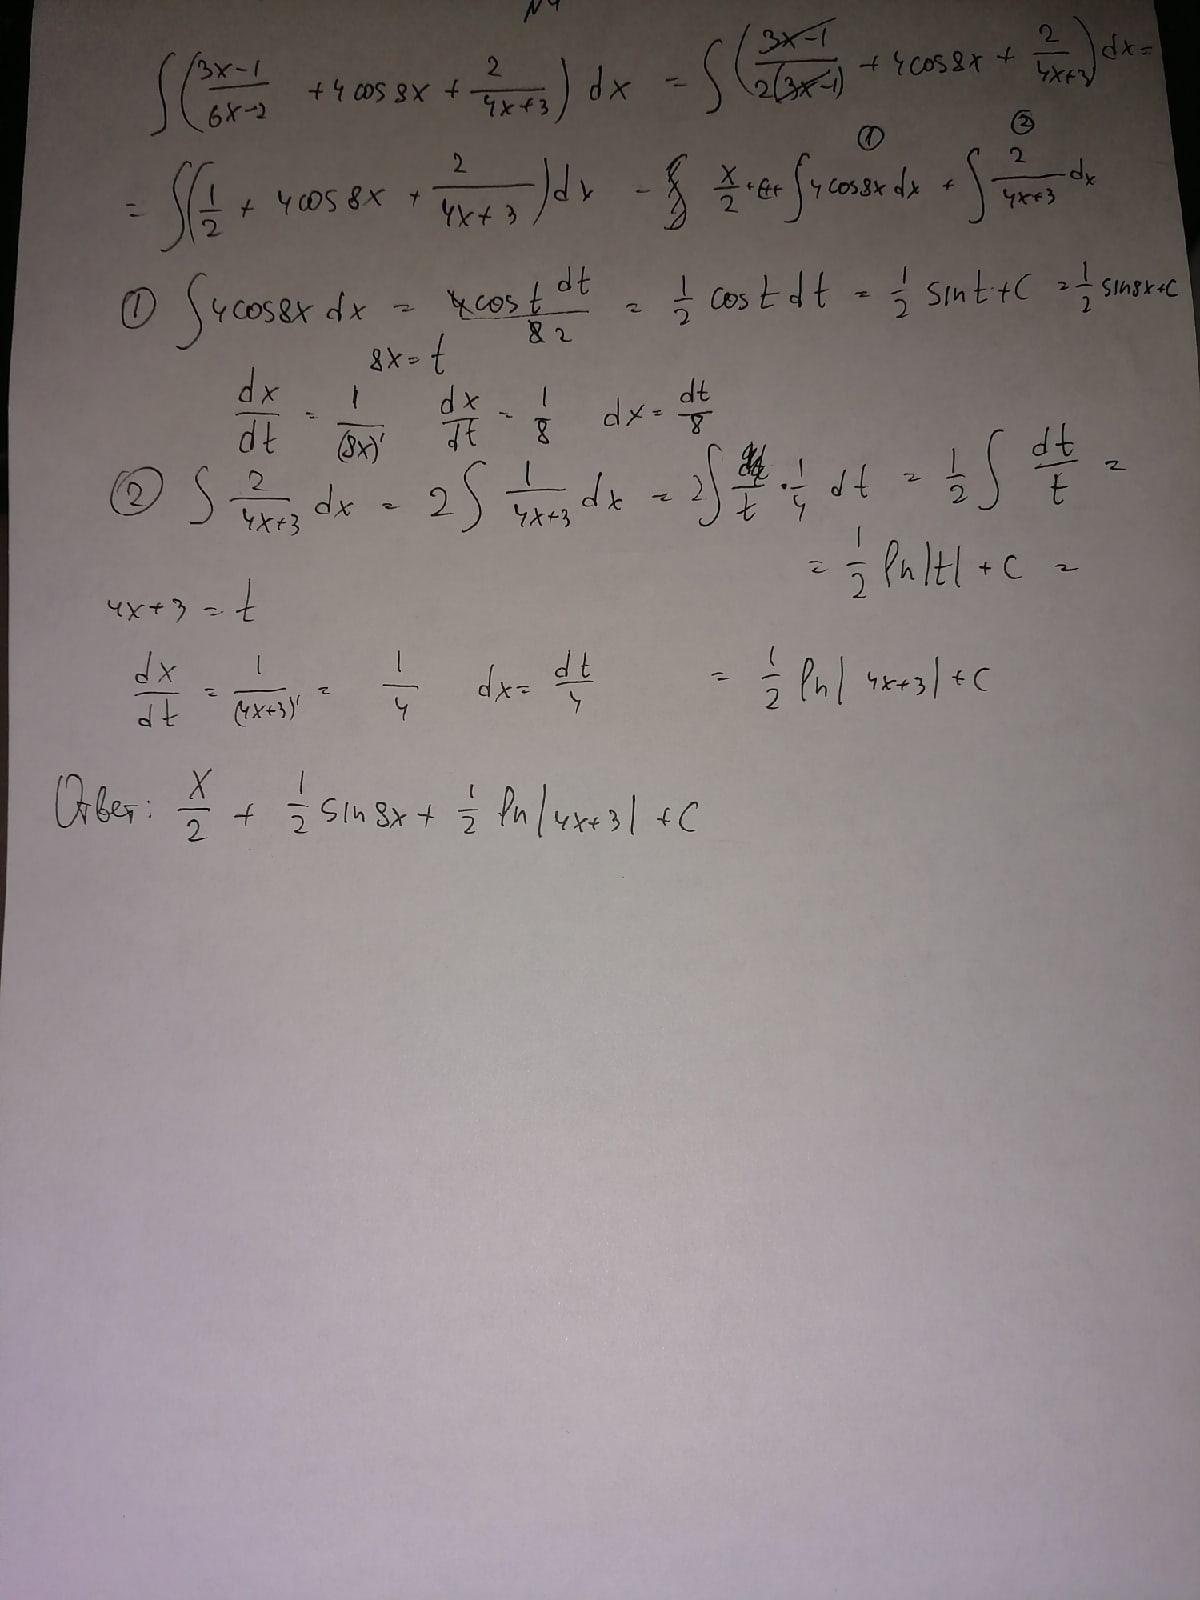 N4
∫((3x-1)/(6x-2) + 4 cos 8x + 2/(4x+3)) dx = ∫((3x-1)/(2(3x-1)) + 4 cos 8x + 2/(4x+3)) dx =
= ∫(1/2 + 4 cos 8x + 2/(4x+3)) dx = x/2 + ∫ 4 cos 8x dx + ∫ 2/(4x+3) dx
① ②
① ∫ 4 cos 8x dx = 4 cos t dt / 8 2 = 1/2 cos t dt = 1/2 sin t + C = 1/2 sin 8x + C
8x = t
dx/dt = 1/(8x)' dx/dt = 1/8 dx = dt/8
② ∫ 2/(4x+3) dx = 2 ∫ 1/(4x+3) dx = 2 ∫ 1/t · 1/4 dt = 1/2 ∫ dt/t =
= 1/2 ln|t| + C =
4x+3 = t
dx/dt = 1/(4x+3)' = 1/4 dx = dt/4 = 1/2 ln|4x+3| + C
Ответ: x/2 + 1/2 sin 8x + 1/2 ln|4x+3| + C